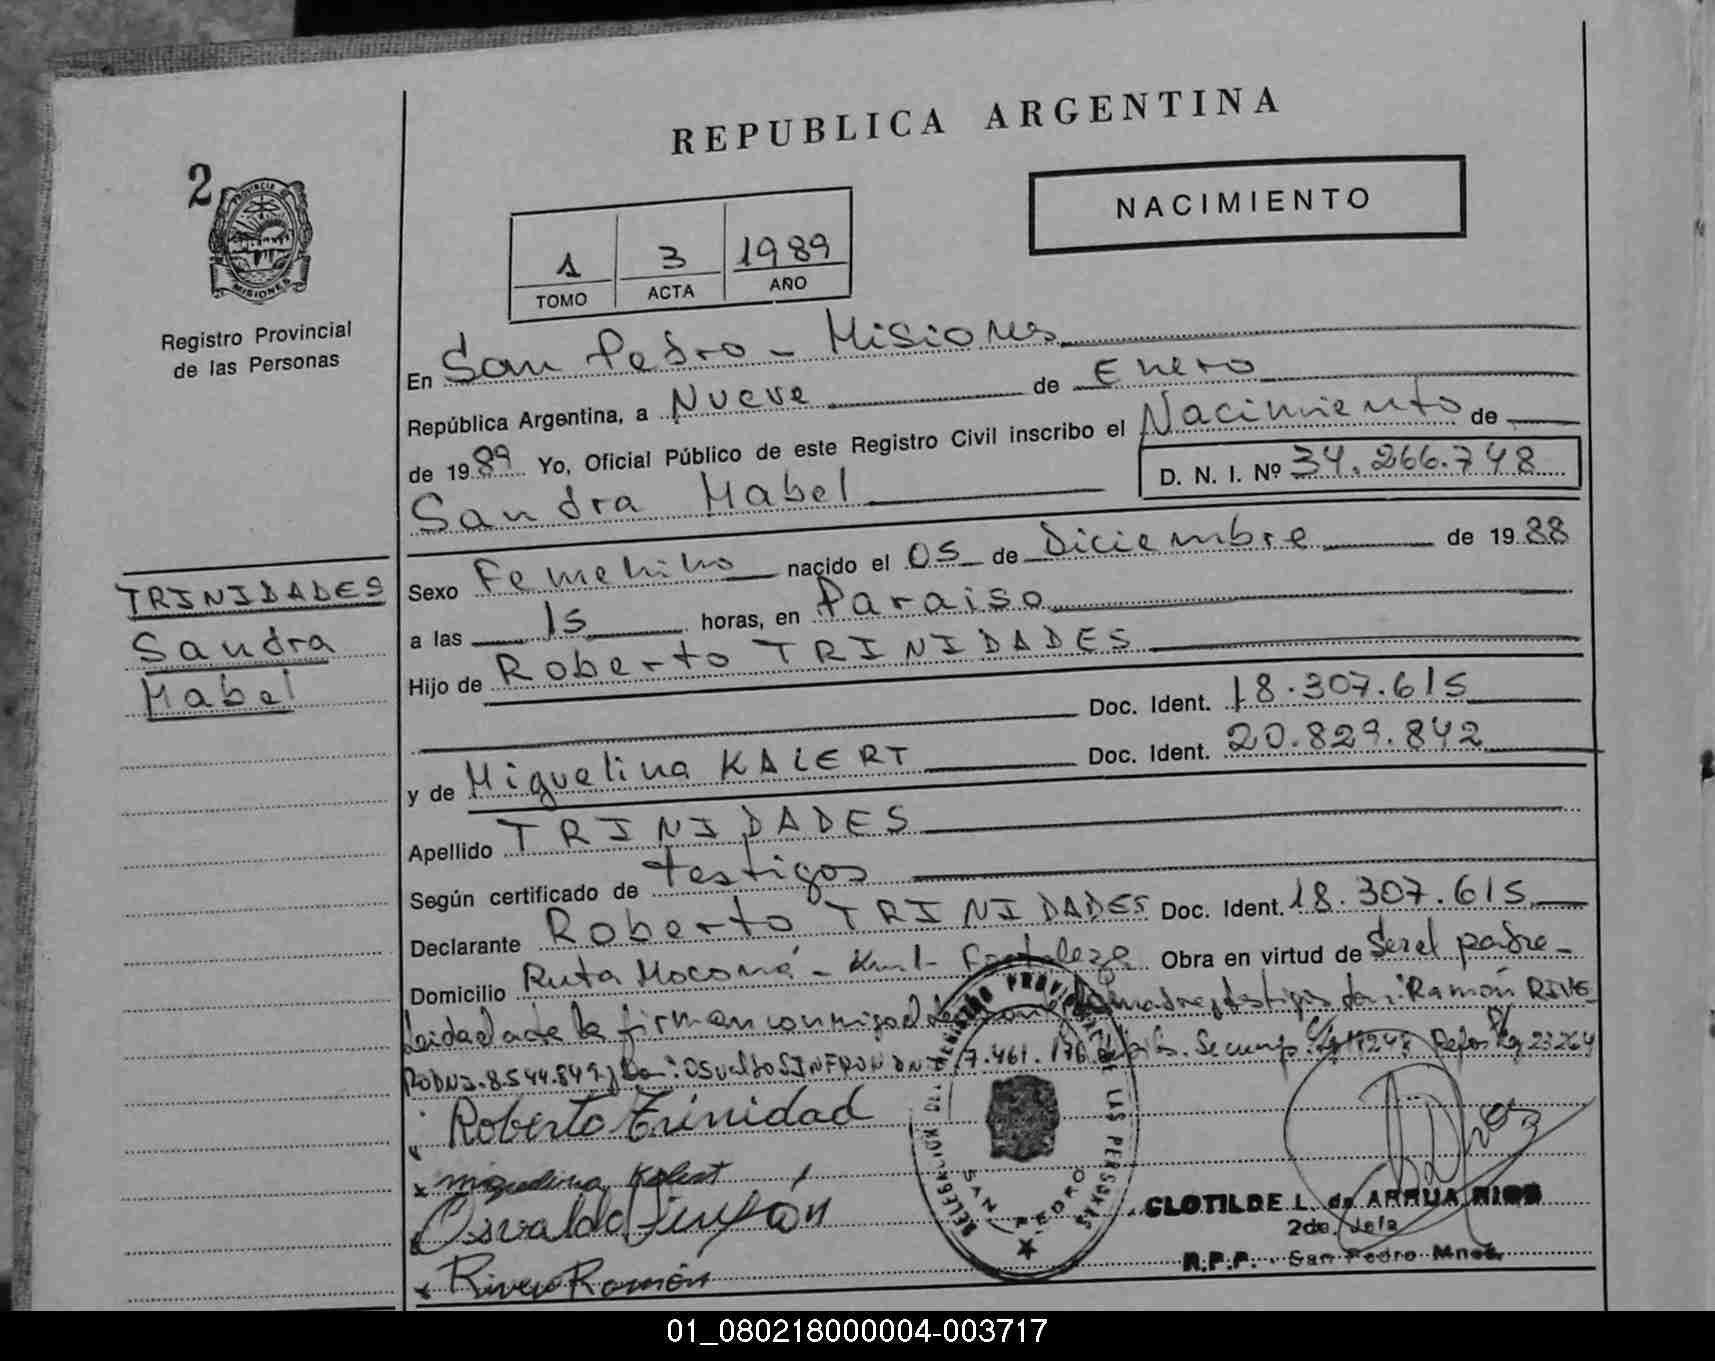 REPUBLICA ARGENTINA
2
PROVINCIA DE
MISIONES
Registro Provincial
de las Personas
1 3 1989
TOMO ACTA AÑO
NACIMIENTO
En San Pedro - Misiones
República Argentina, a Nueve de Enero
de 1989 Yo, Oficial Público de este Registro Civil inscribo el Nacimiento de
D. N. I. Nº 34.266.748
Sandra Mabel
TRINIDADES
Sandra
Mabel
Sexo Femenino nacido el 05 de Diciembre de 1988
a las 15 horas, en Paraiso
Hijo de Roberto TRINIDADES
Doc. Ident. 18.307.615
y de Miguelina KALERT Doc. Ident. 20.829.842
Apellido TRINIDADES
Según certificado de testigos
Declarante Roberto TRINIDADES Doc. Ident. 18.307.615
Domicilio Ruta Moconá - Km1- Fortaleza Obra en virtud de Ser el padre -
Leida el acta la firman conmigo el madre y testigos Ramón RIVE-
RO DNI. 8.544.849 y Don: Osvaldo SINFRON DNI 7.461.176
Roberto Trinidad
Miguelina Kalert
Osvaldo
Rivero Ramón
DELEGACION DEL REGISTRO PROVINCIAL DE LAS PERSONAS
SAN PEDRO
CLOTILDE L. de ARRUA RIOS
R.P.P. San Pedro Mnes.
01_080218000004-003717